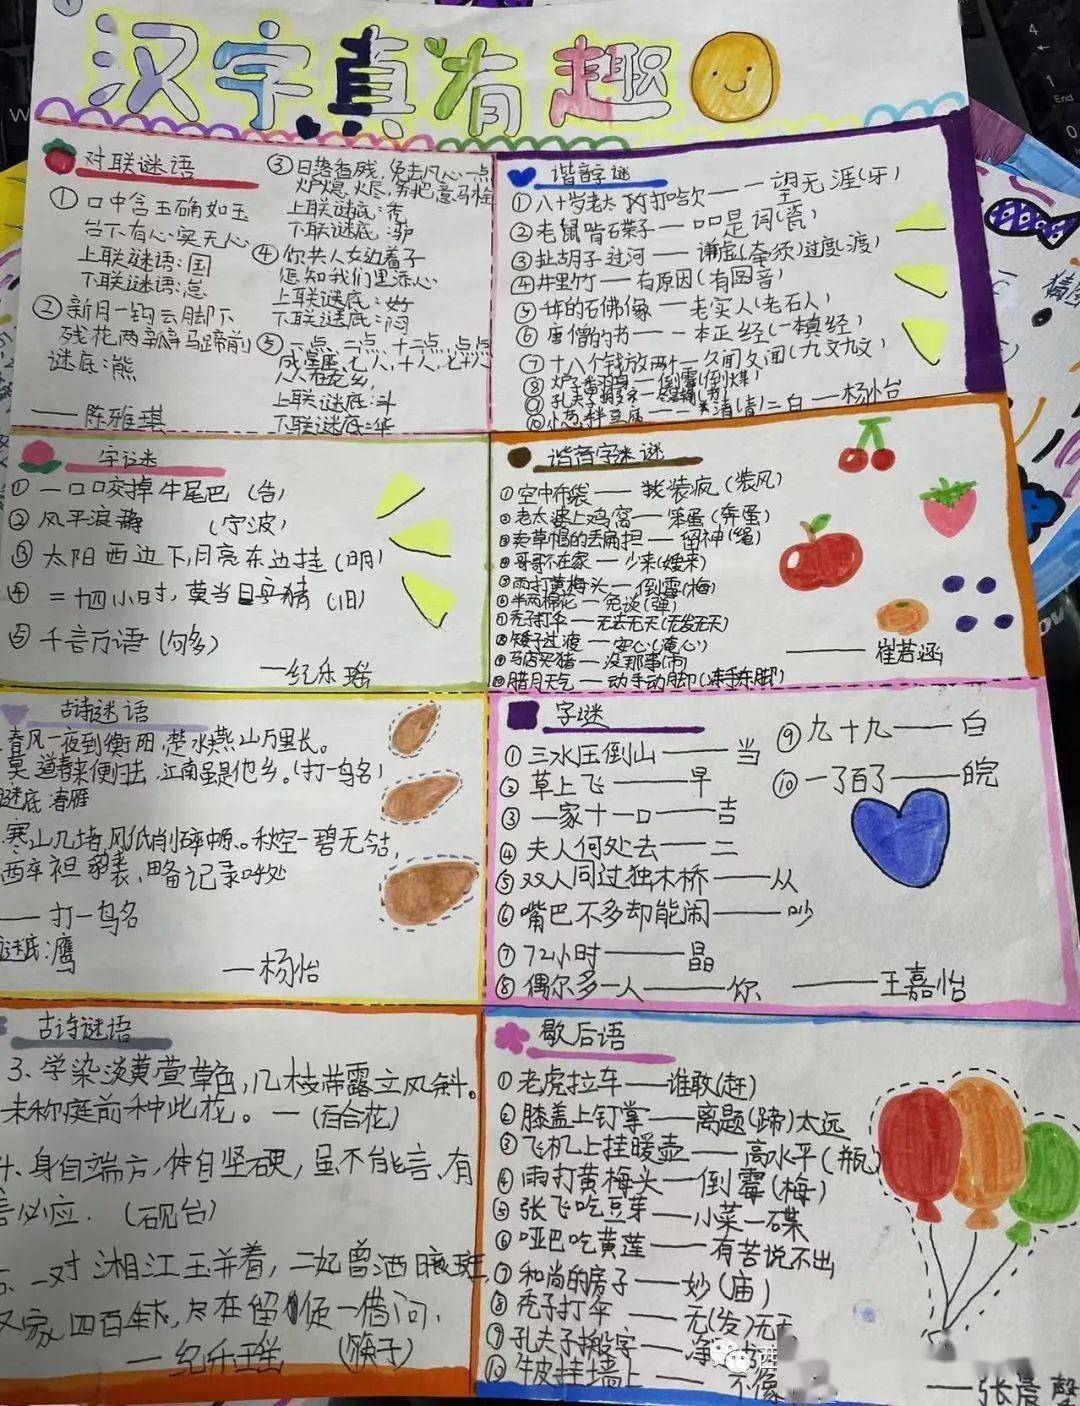 汉字真有趣
对联谜语
① 口中含玉确如玉
台下有心实无心
上联谜语:国
下联谜语:怠
② 新月一钩云脚下
残花两瓣马蹄前
谜底:熊
——陈雅琪
③ 日落香残,免去凡心一点
炉熄火尽,务把意马栓
上联谜底:秃
下联谜底:驴
④ 你共人女边着子
怎知我们里添心
上联谜底:好
下联谜底:闷
⑤ 一点、二点、十二点,点点
成星座,七人,十人,七十八
上联谜底:斗
下联谜底:华
谐音字谜
① 八十岁老太打哈欠——一望无涯(牙)
② 老鼠啃碟子——口口是词(瓷)
③ 扯胡子过河——谦虚(牵须)过度(渡)
④ 井里竹——有原因(有圆音)
⑤ 年的石佛像——老实人(老石人)
⑥ 唐僧的书——一本正经(一本真经)
⑦ 十八个钱放两——久闻久闻(九文九文)
⑧ 炉子番羽身——倒霉(倒煤)
⑩ 小葱拌豆腐——清(青)二白——杨怡
字谜
① 一口口咬掉牛尾巴 (告)
② 风平浪静 (宁波)
③ 太阳西边下,月亮东边挂 (明)
④ 二十四小时,莫当日母猜 (旧)
⑤ 千言万语 (够)
——纪乐瑶
谐音字迷谜
① 空中布袋——装疯 (装风)
② 老太婆上鸡窝——笨蛋(奔蛋)
③ 卖草帽的丢扁担——留神(绳)
④ 哥哥不在家——少来(嫂来)
⑤ 雨打黄梅头——倒霉(梅)
⑥ 半两棉花——免谈(弹)
⑦ 秃子打伞——无去无天(无发无天)
⑧ 矮子过渡——安心(淹心)
⑨ 马店买猪——没那事(市)
⑩ 腊月天气——动手动脚(冻手冻脚)
——崔若涵
古诗谜语
春风一夜到衡阳,楚水燕山万里长。
莫道春来便归去,江南虽是他乡。(打一鸟名)
谜底:春雁
寒山几堵,风低削碎中原。秋空一碧无今古,
西卒袒豹裘,略记录呼处
——打一鸟名
谜底:鹰
——杨怡
字谜
① 三水压倒山——当
② 草上飞——早
③ 一家十一口——吉
④ 夫人何处去——二
⑤ 双人同过独木桥——从
⑥ 嘴巴不多却能闹——吵
⑦ 72小时——晶
⑧ 偶尔多一人——你
⑨ 九十九——白
⑩ 一了百了——皖
——王嘉怡
古诗谜语
3、学染淡黄萱草色,几枝带露立风斜。
未称庭前种此花。—(百合花)
身自端方,体自坚硬,虽不能言,有
言必应. (砚台)
一对湘江玉并着,二妃曾洒日痕斑,
汉家四百年,尽在留侯一借问.
——纪乐瑶 (筷子)
歇后语
① 老虎拉车——谁敢(赶)
② 膝盖上钉掌——离题(蹄)太远
③ 飞机上挂暖壶——高水平(瓶)
④ 雨打黄梅头——倒霉(梅)
⑤ 张飞吃豆芽——小菜一碟
⑥ 哑巴吃黄莲——有苦说不出
⑦ 和尚的房子——妙(庙)
⑧ 秃子打伞——无(发)无天
⑨ 孔夫子搬字——净
⑩ 牛皮挂墙上——不像
——张晨馨